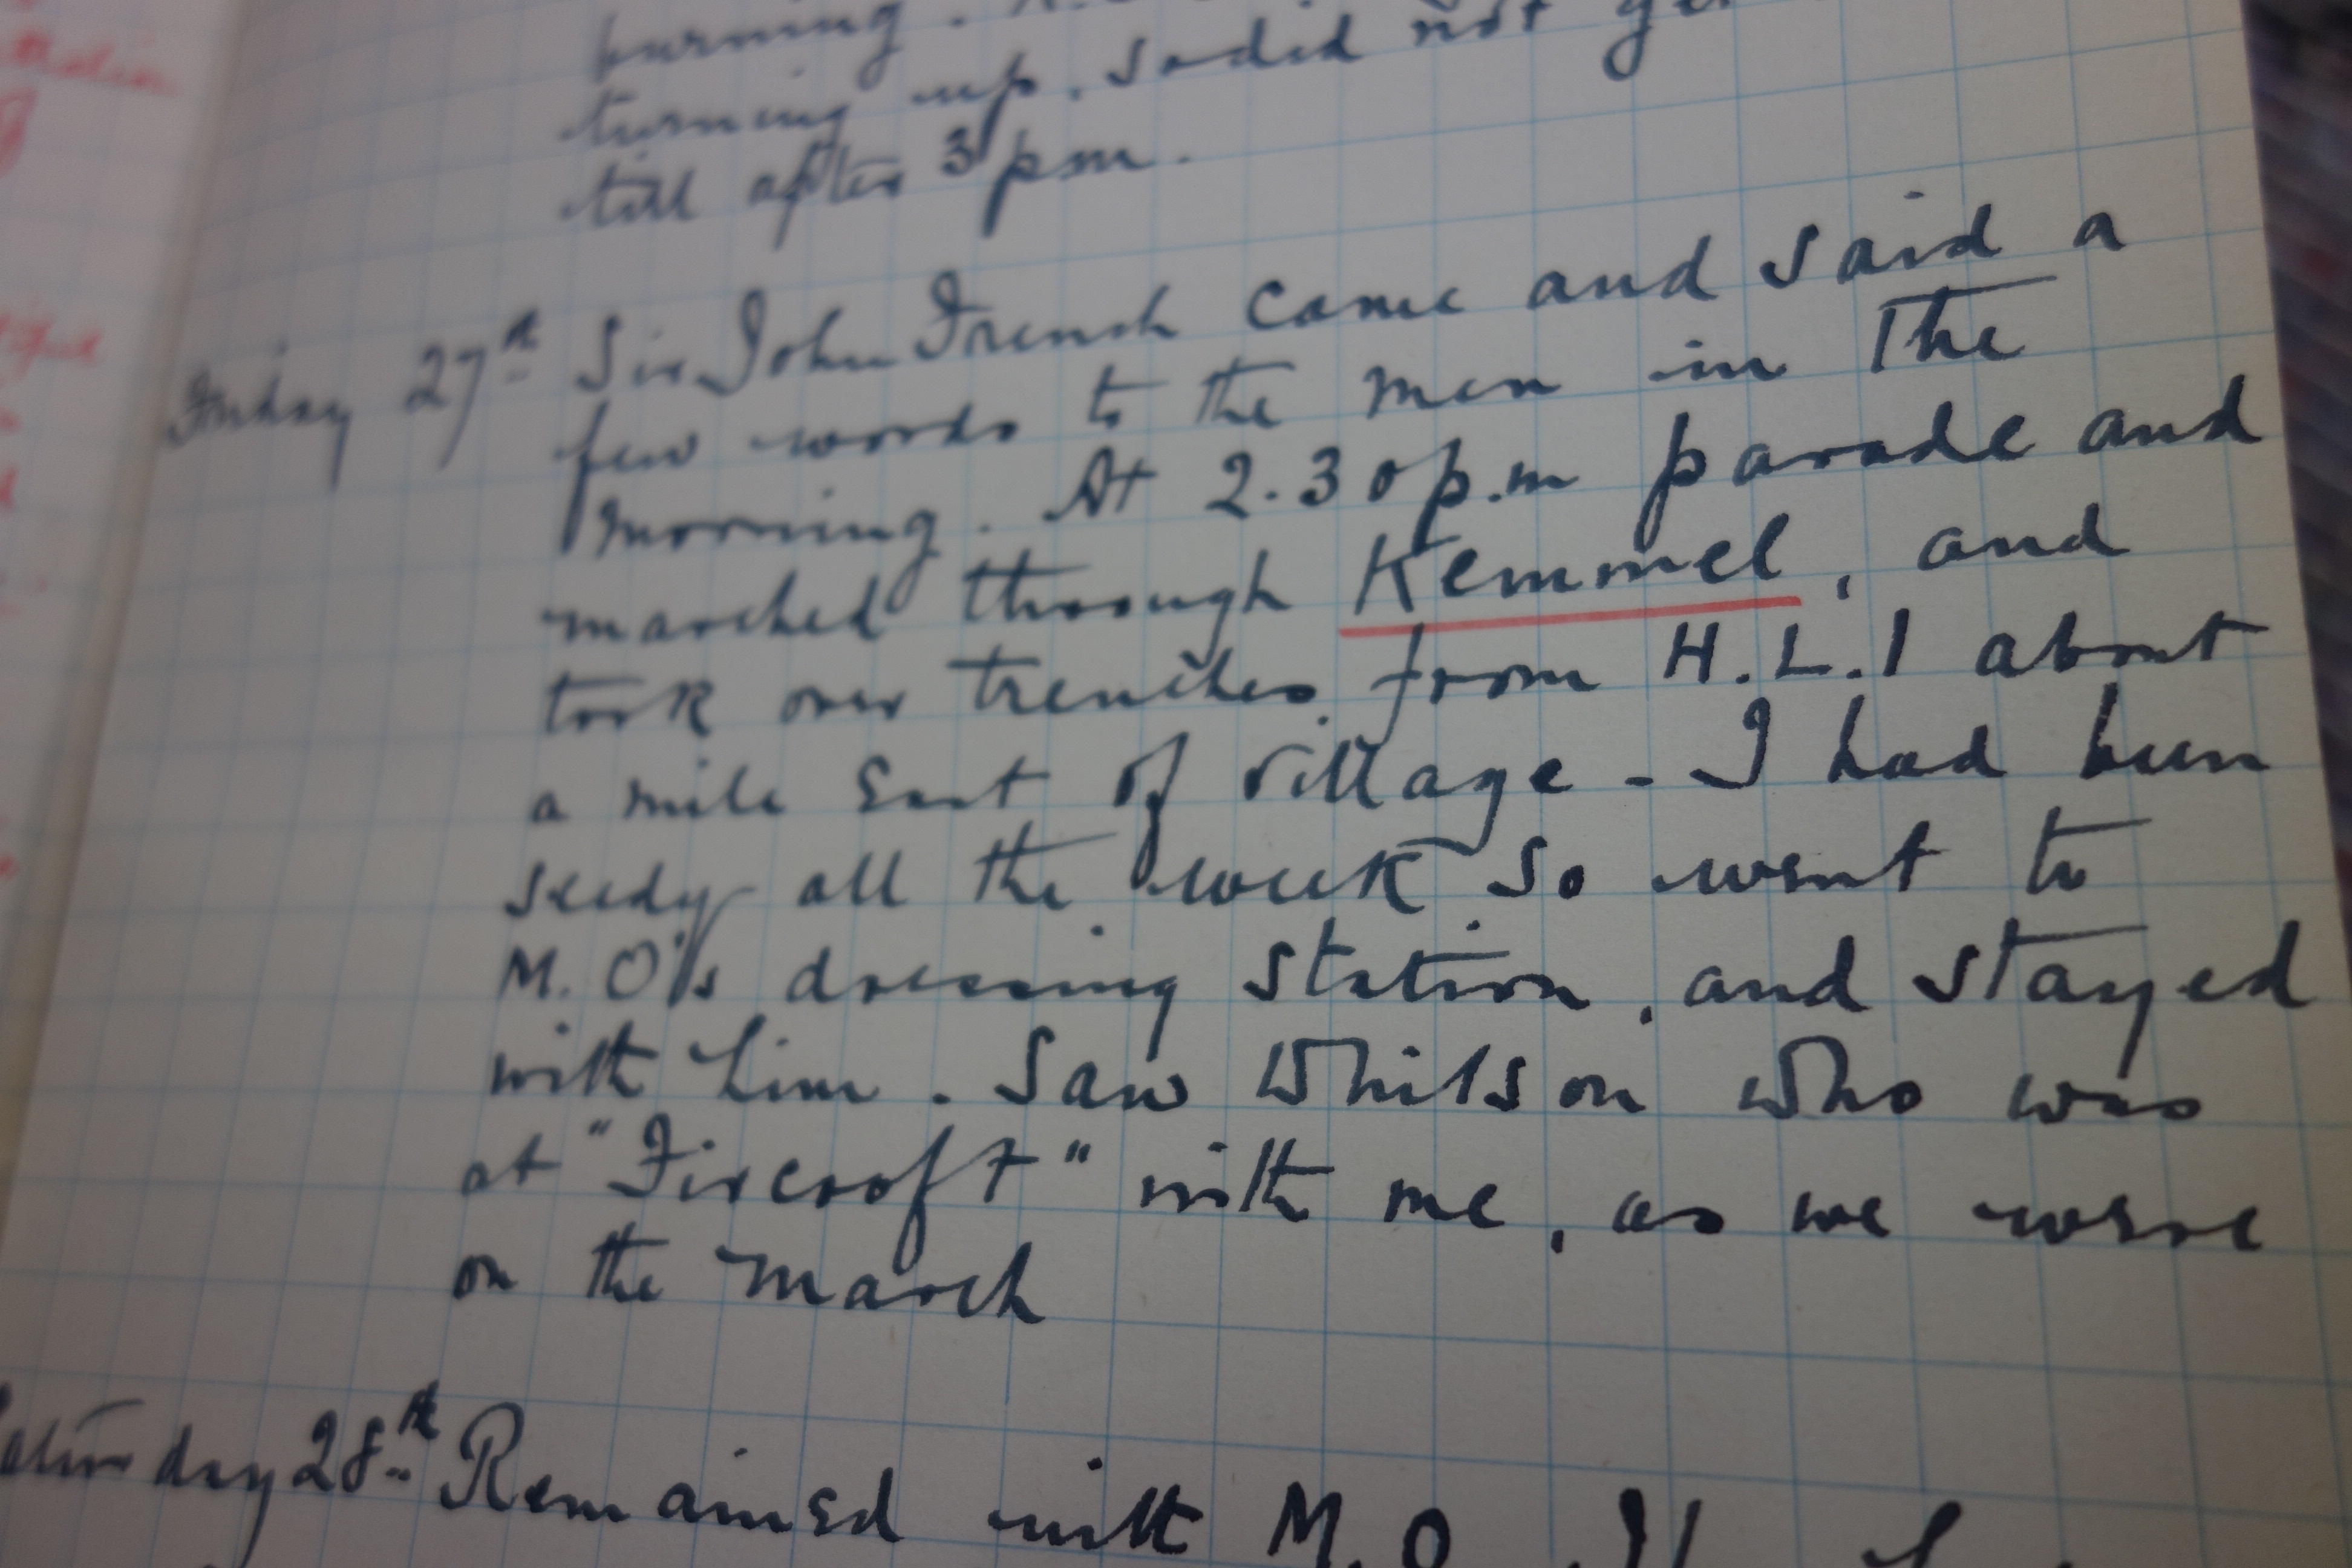 burning.
turning up. So did not
till after 3 pm.
Friday 27th Sir John French came and said a
few words to the men in The
morning. At 2.30 p.m parade and
marched through Kemmel, and
took over trenches from H.L.I about
a mile East of village - I had been
seedy all the week so went to
M.O's dressing station, and stayed
with him. Saw Whitson who was
at "Fircroft" with me, as we were
on the march
Saturday 28th Remained with M.O.